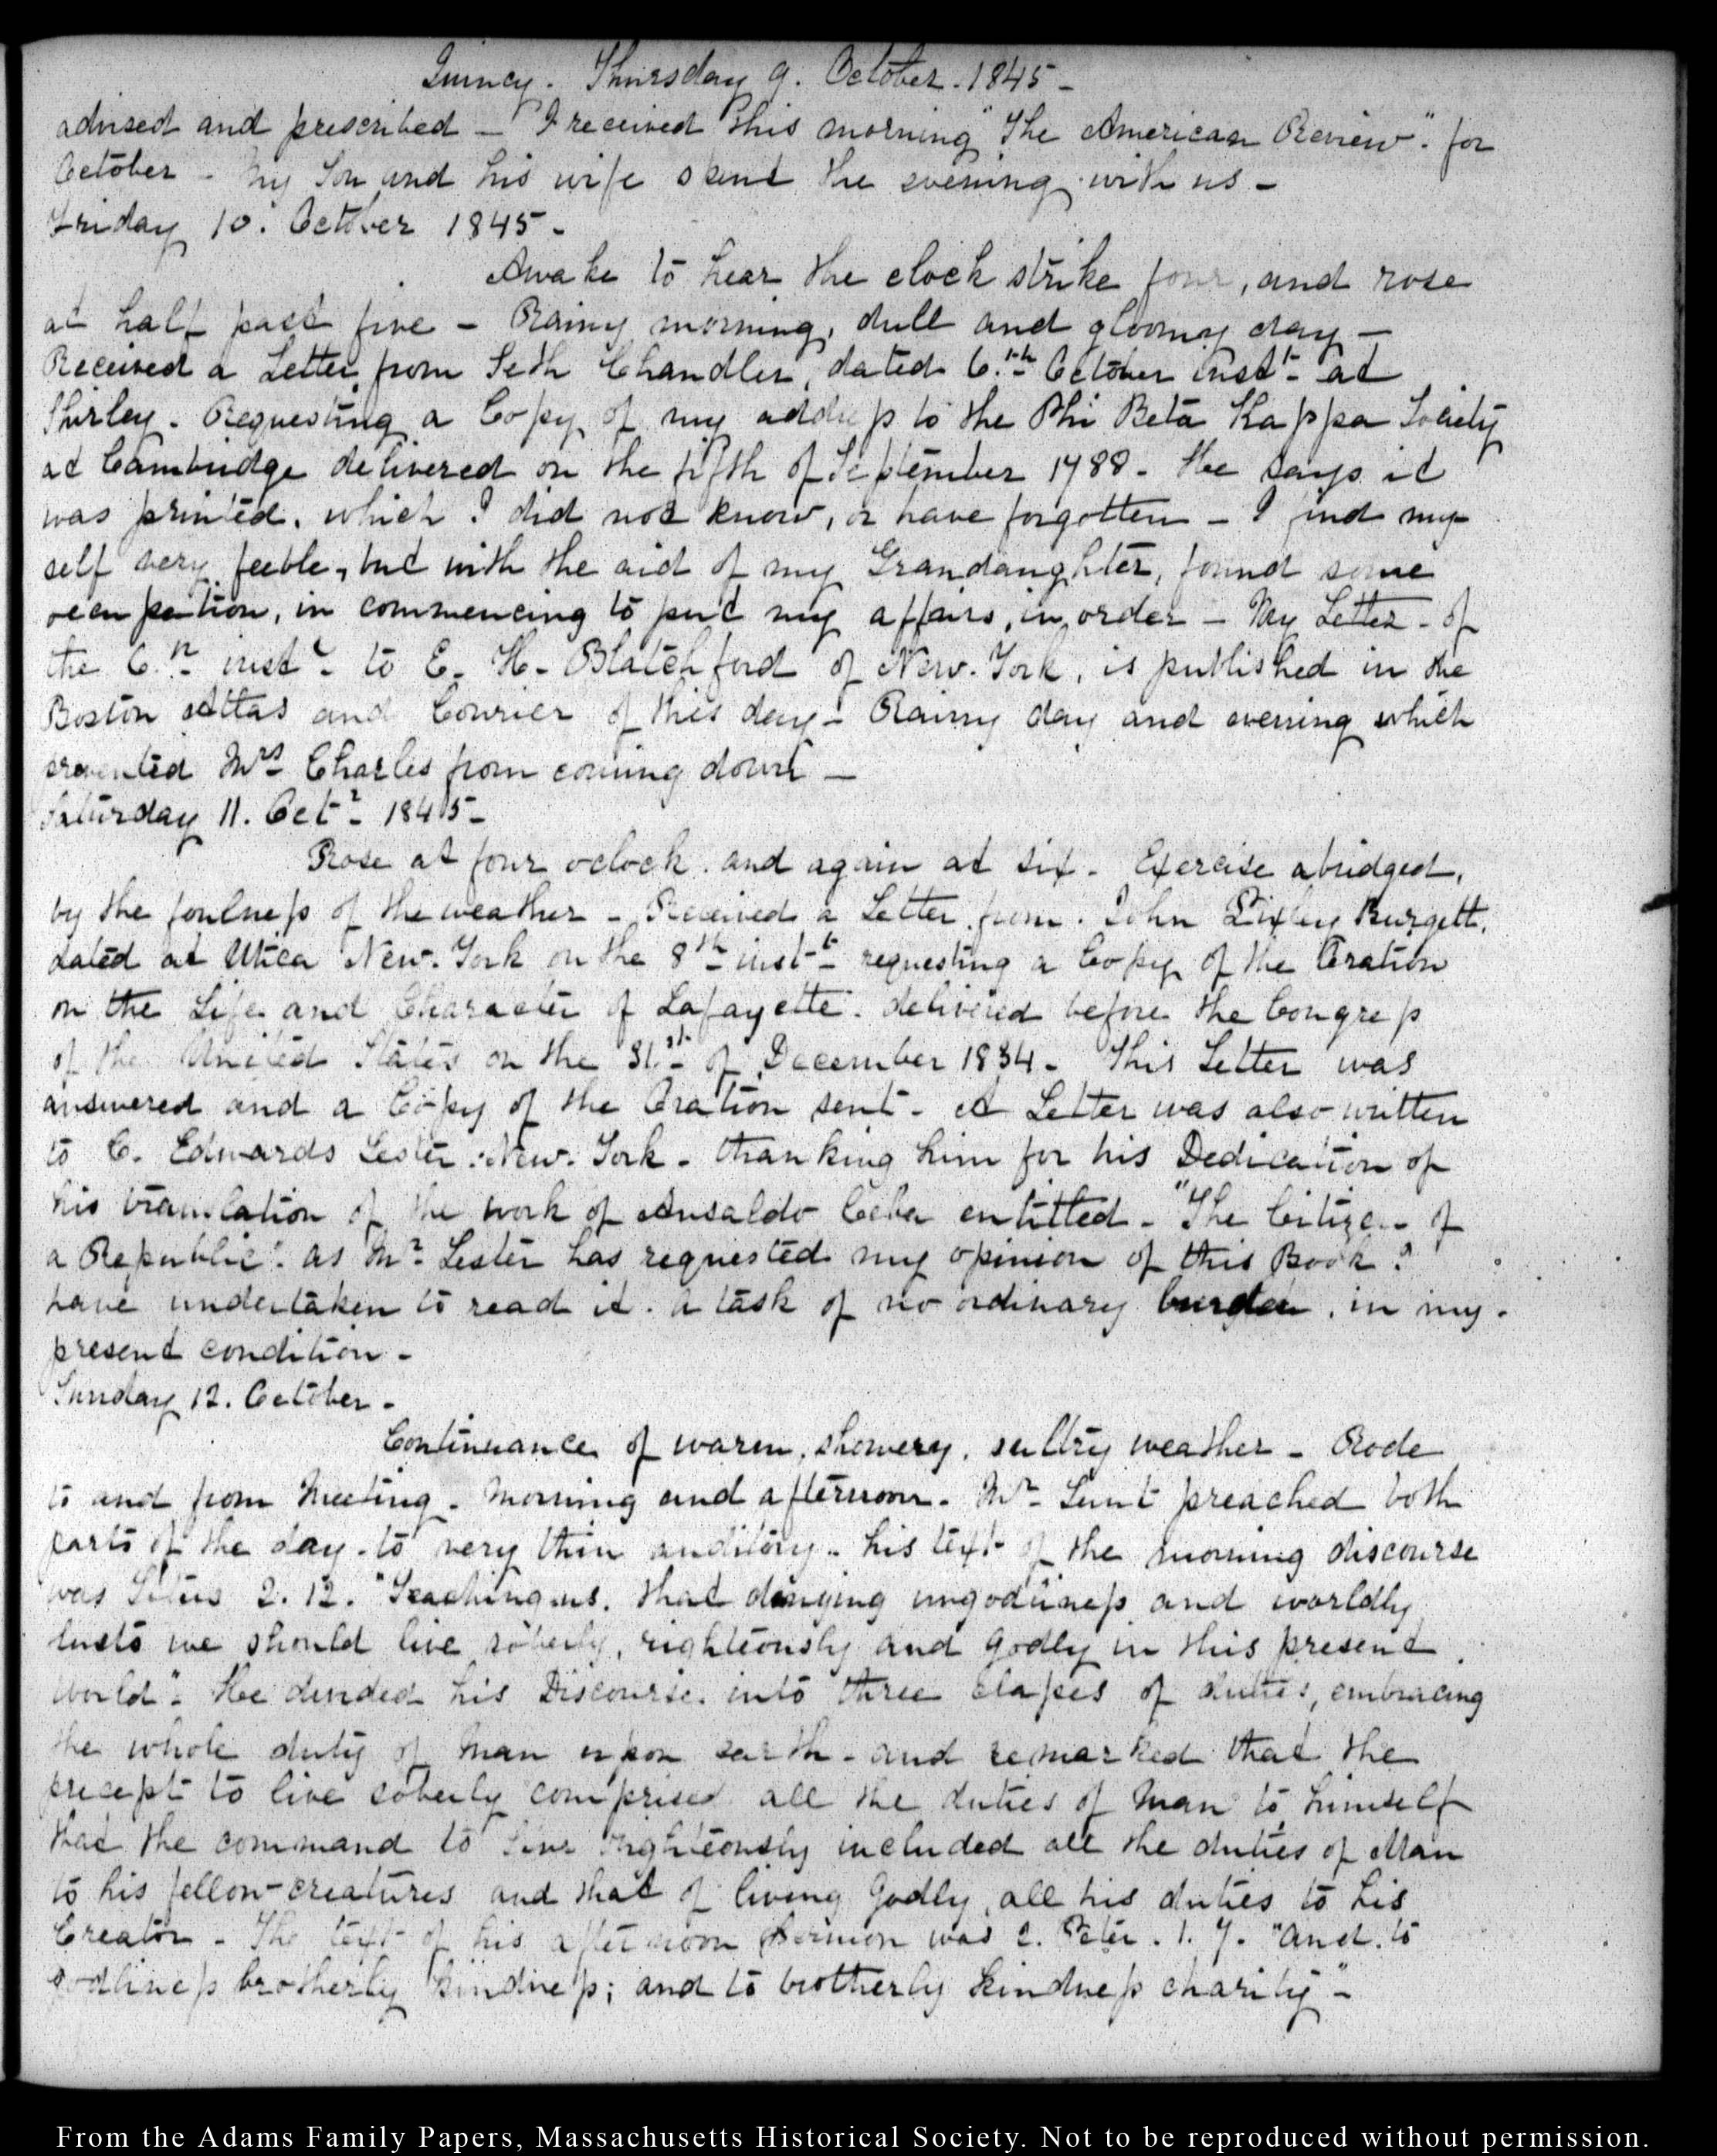 Quincy. Thursday 9. October. 1845 -
advised and prescribed - I received this morning "The American Review". for
October - My Son and his wife spent the evening with us -
Friday 10. October 1845 -
Awake to hear the clock strike four, and rose
at half past five - Rainy morning, dull and gloomy day -
Received a Letter from Seth Chandler, dated 6.th October inst.t at
Shirley. Requesting a Copy of my address to the Phi Beta Kappa Society
at Cambridge delivered on the fifth of September 1788. He says it
was printed, which I did not know, or have forgotten - I find my
self very feeble, but with the aid of my Grandaughter, found some
occupation, in commencing to put my affairs, in order - My Letter - of
the 6.th inst.t to E. H. Blatchford of New-York, is published in the
Boston Atlas and Courier of this day - Rainy day and evening which
prevented Mrs Charles from coming down -
Saturday 11. Octr. 1845 -
Rose at four oclock. and again at six. Exercise abridged,
by the foulness of the weather - Received a Letter from. John Pixley Burgett.
dated at Utica New-York on the 8th inst.t requesting a Copy of the Oration
on the Life and Character of Lafayette. delivered before the Congress
of the United States on the 31.st of December 1834. This Letter was
answered and a Copy of the Oration sent - A Letter was also written
to C. Edwards Lester. New-York - thanking him for his Dedication of
his translation of the work of Ansaldo Ceba entitled - "The Citizen of
a Republic". as Mr. Lester has requested my opinion of this Book. I
have undertaken to read it. a task of no ordinary burden, in my.
present condition -
Sunday 12. October -
Continuance of warm, showery, sultry weather - Rode
to and from Meeting. Morning and afternoon. Mr. Lunt preached both
parts of the day. to very thin auditory. his text of the morning discourse
was Titus 2. 12. "Teaching us. that denying ungodliness and worldly
lusts we should live soberly, righteously and Godly in this present
world". He divided his Discourse into three classes of duties, embracing
the whole duty of man upon earth - and remarked that the
precept to live soberly comprised all the duties of Man to himself
that the command to live righteously included all the duties of Man
to his fellow-creatures and that of living Godly, all his duties to his
Creator - The text of his afternoon Sermon was 2. Peter. 1. 7. "And. to
godliness brotherly kindness; and to brotherly kindness charity" -
From the Adams Family Papers, Massachusetts Historical Society. Not to be reproduced without permission.